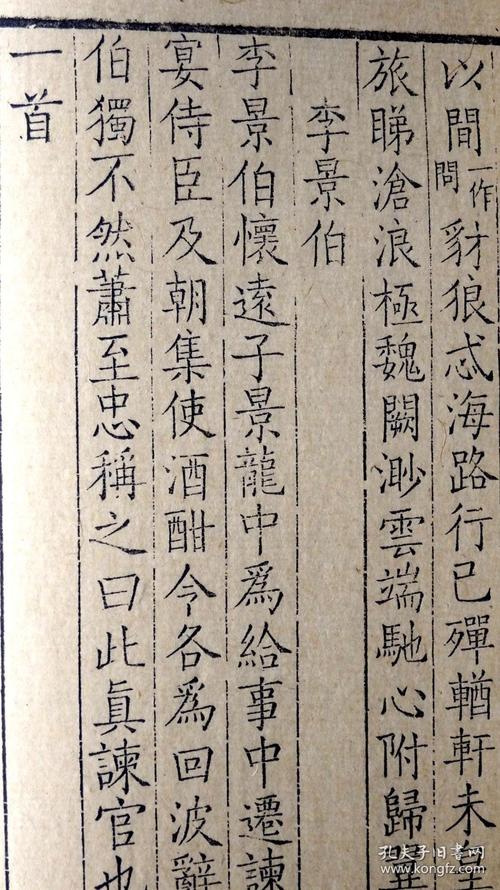 以間一作問豺狼忒海路行已殫輶軒未
旅睇滄浪極魏闕渺雲端馳心附歸
李景伯
李景伯懷遠子景龍中爲給事中遷諫
宴侍臣及朝集使酒酣令各爲回波辭
伯獨不然蕭至忠稱之曰此眞諫官也
一首
孔夫子旧书网
www.kongfz.com